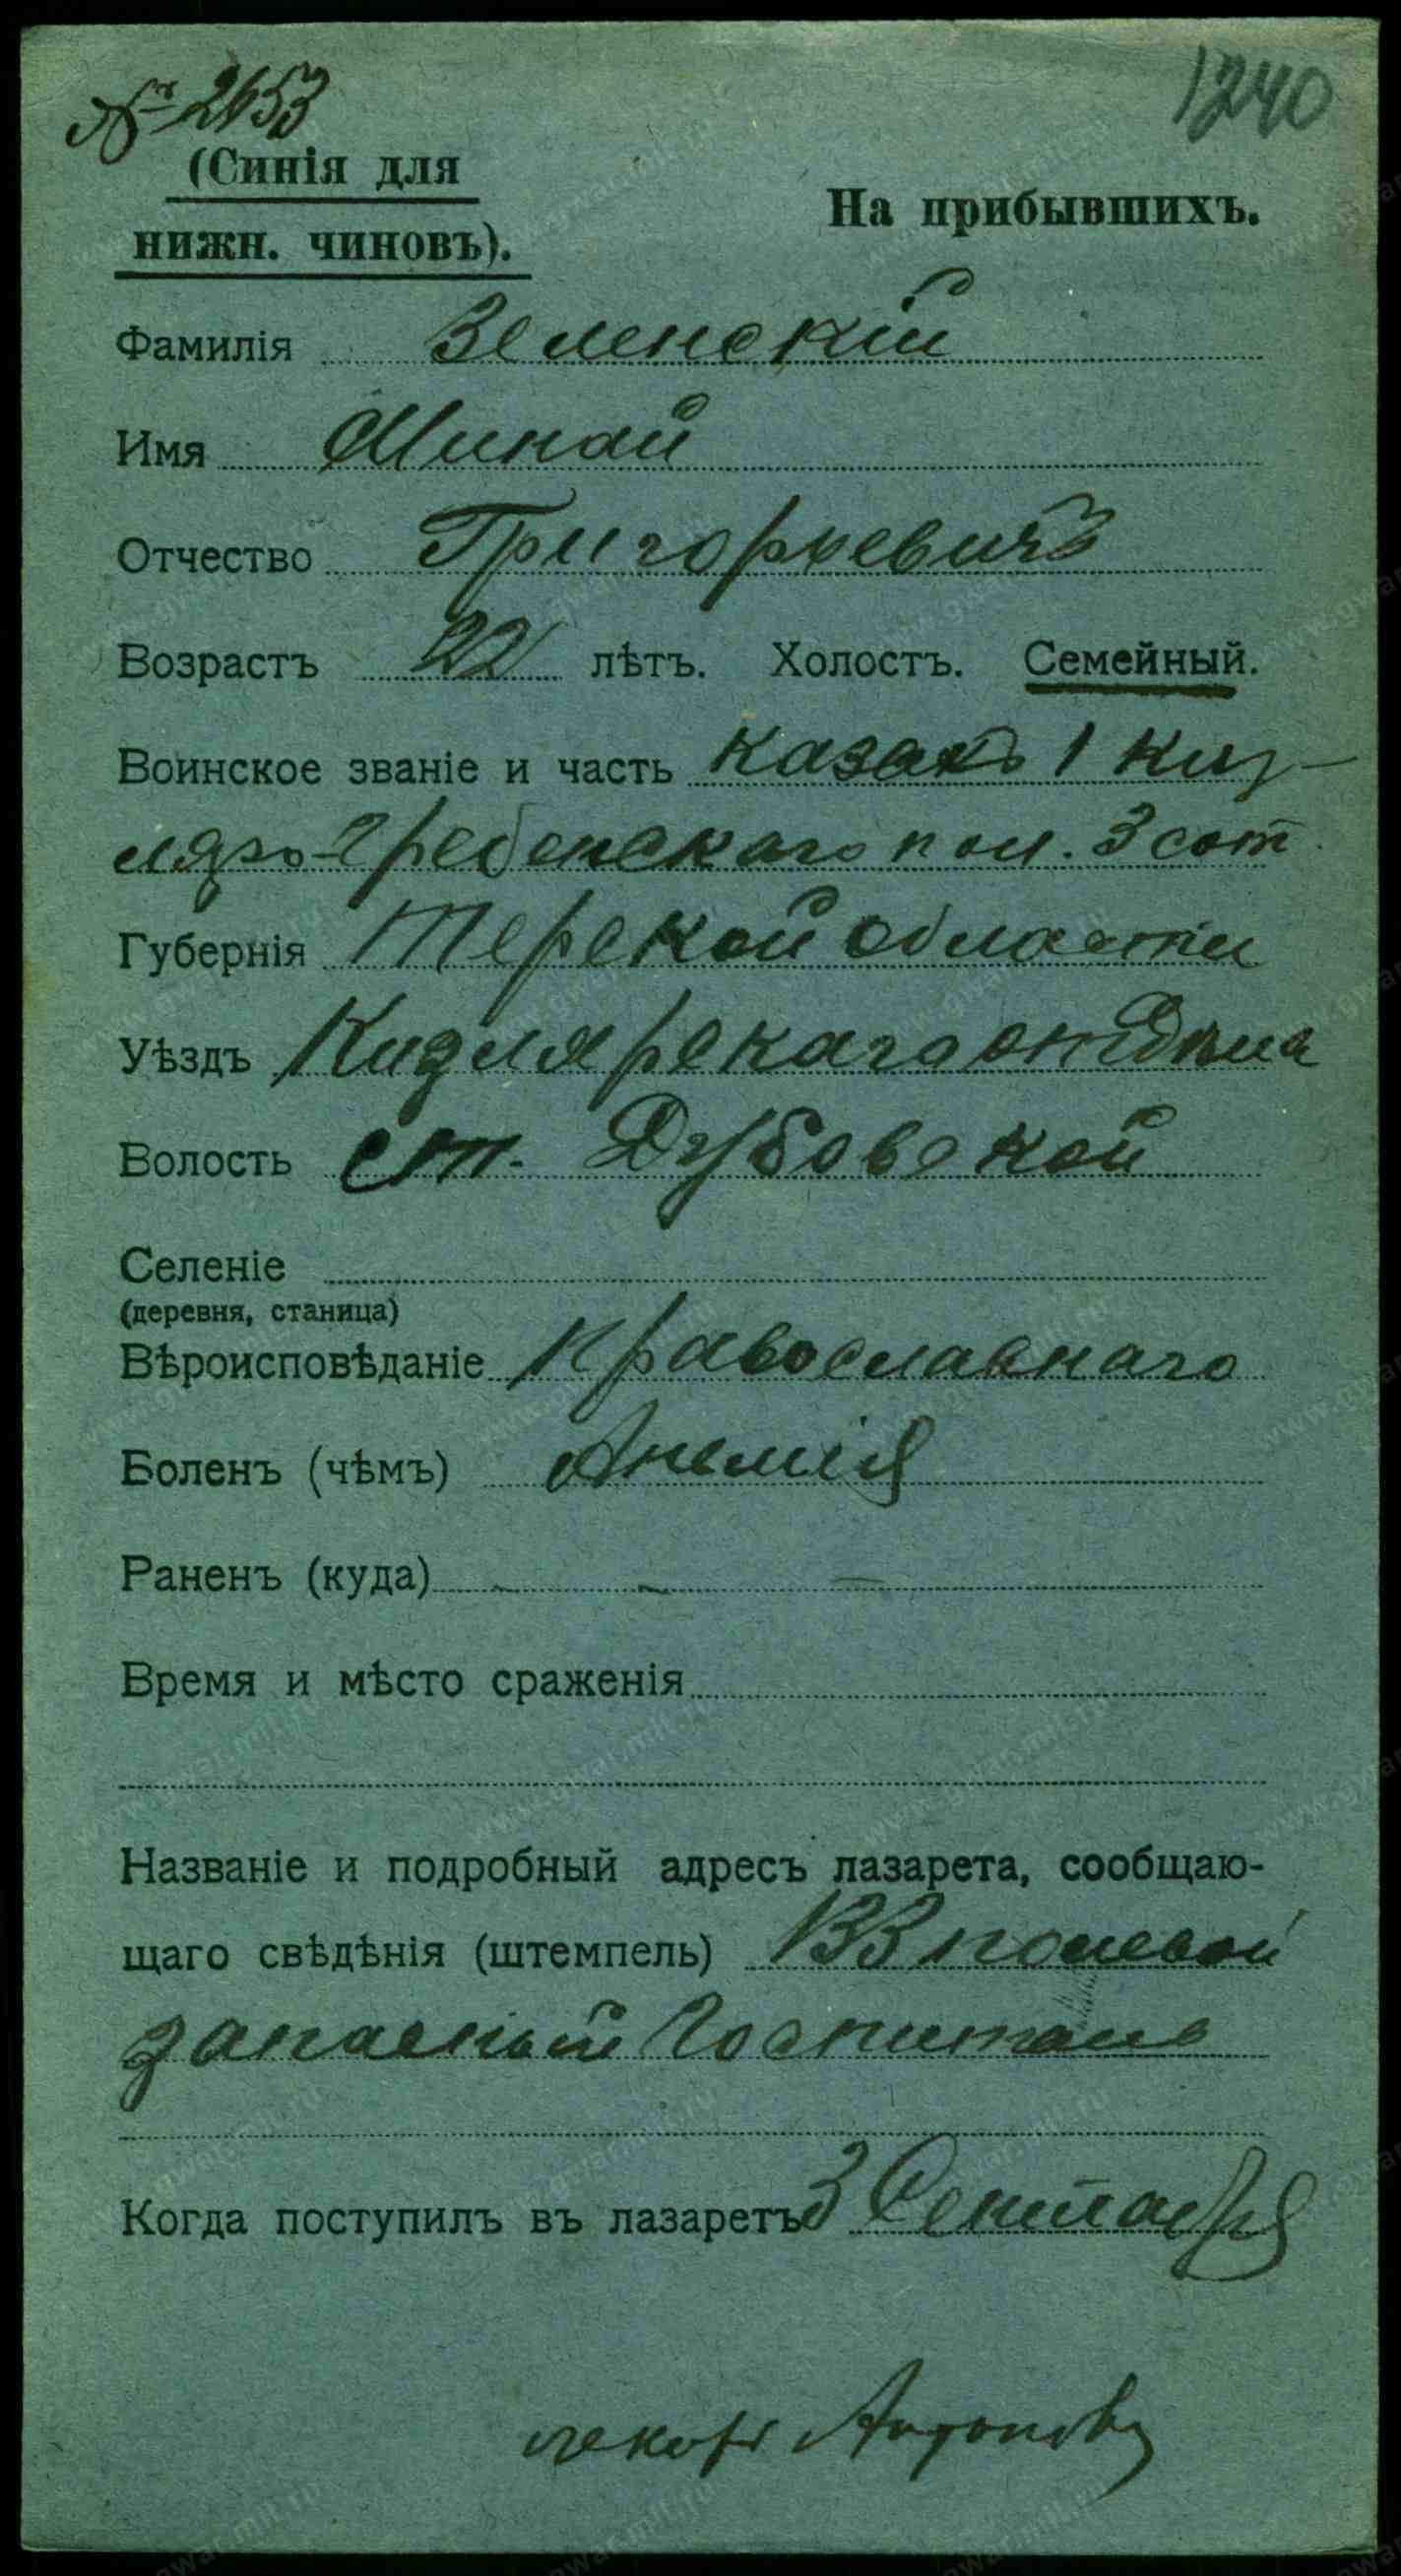 № 2653
1240
(Синія для
нижн. чиновъ).
На прибывшихъ.
Фамилія Зеленскій
Имя Минай
Отчество Григорьевичъ
Возрастъ 22 лѣтъ. Холостъ. Семейный.
Воинское званіе и часть казакъ 1 Киз-
ляро-Гребенскаго пол. 3 сот.
Губернія Терской области
Уѣздъ Кизлярскаго отдѣла
Волость ст. Дубовской
Селеніе
(деревня, станица)
Вѣроисповѣданіе Православнаго
Боленъ (чѣмъ) Анемія
Раненъ (куда) - - -
Время и мѣсто сраженія
Названіе и подробный адресъ лазарета, сообщаю-
щаго свѣдѣнія (штемпель) 133 полевой
запасный Госпиталь
Когда поступилъ въ лазаретъ 3 Сентября
лекарь
www.gwar.mil.ru